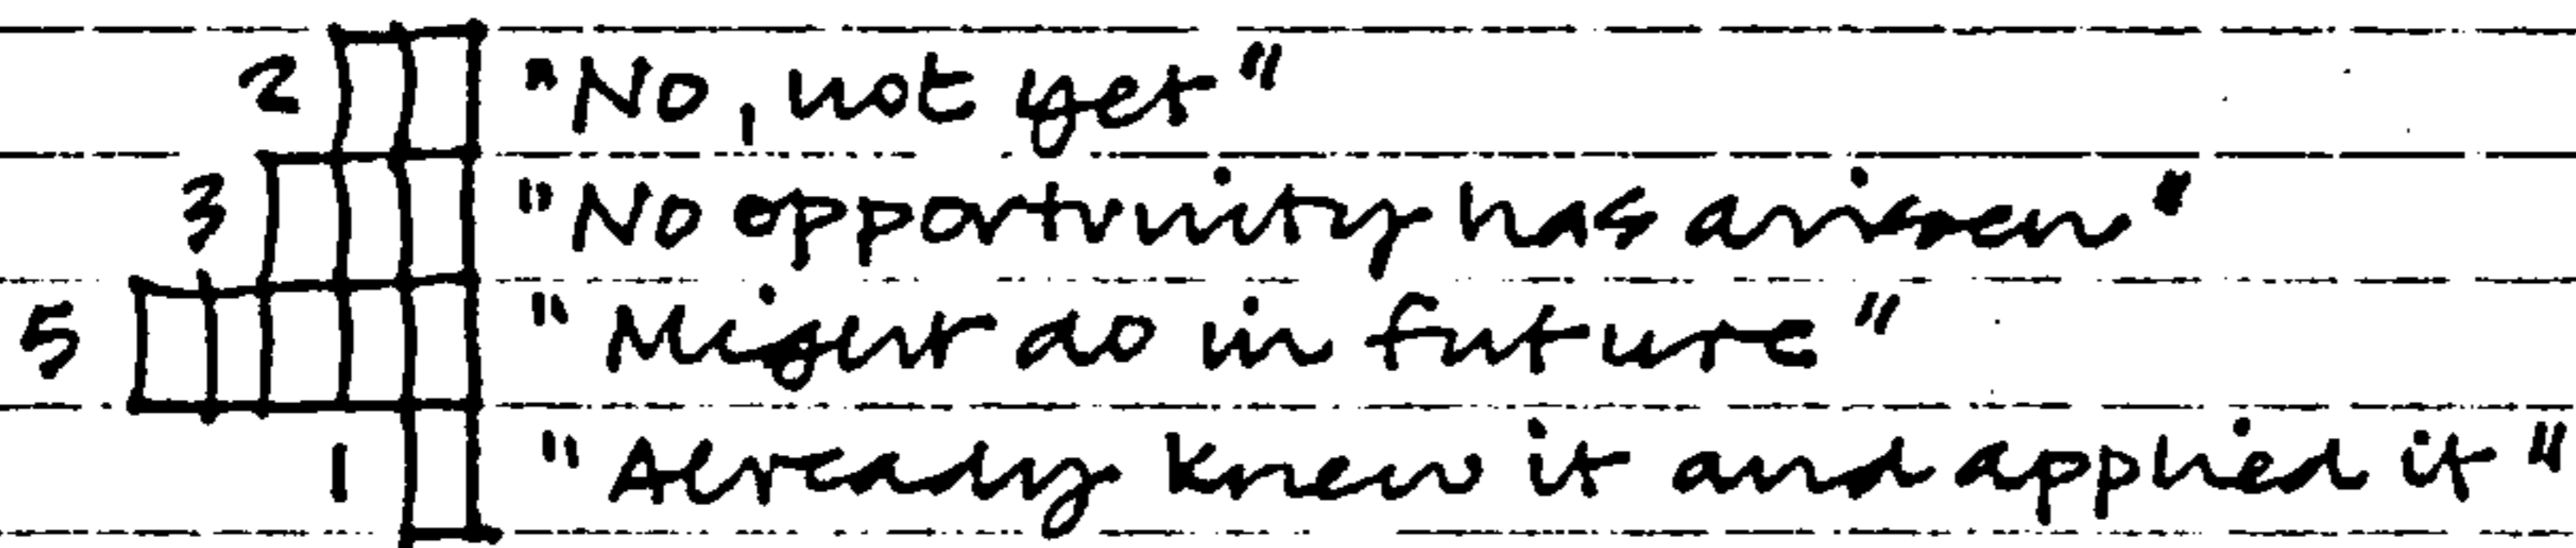 2 "No, not yet"
3 "No opportunity has arisen"
5 "Might do in future"
1 "Already knew it and applied it"